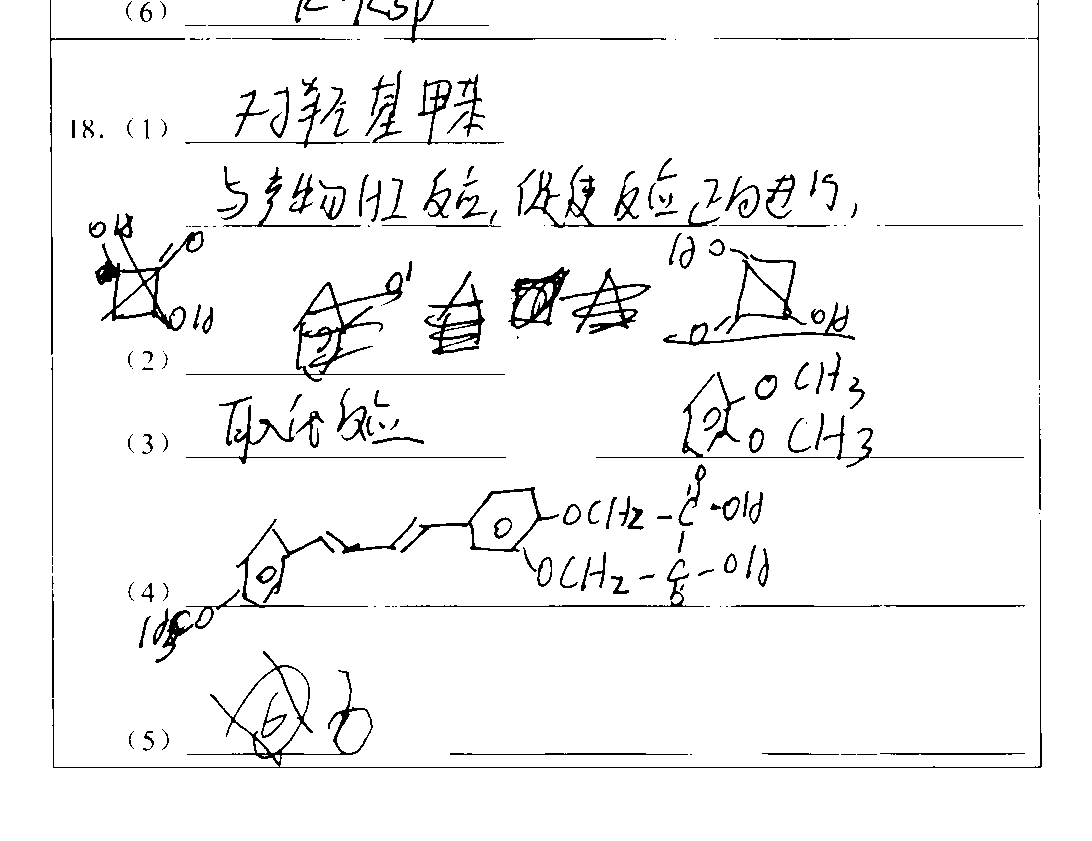 (6) K·Ksp
18. (1) 对羟基甲苯
与产物HI反应,促使反应正向进行,
OH OH O OH
HO O OH
(2)
(3) 取代反应 OCH3 OCH3
O
OCH2-C-OH
OCH2-C-OH
O
(4) H3CO
(5) 6